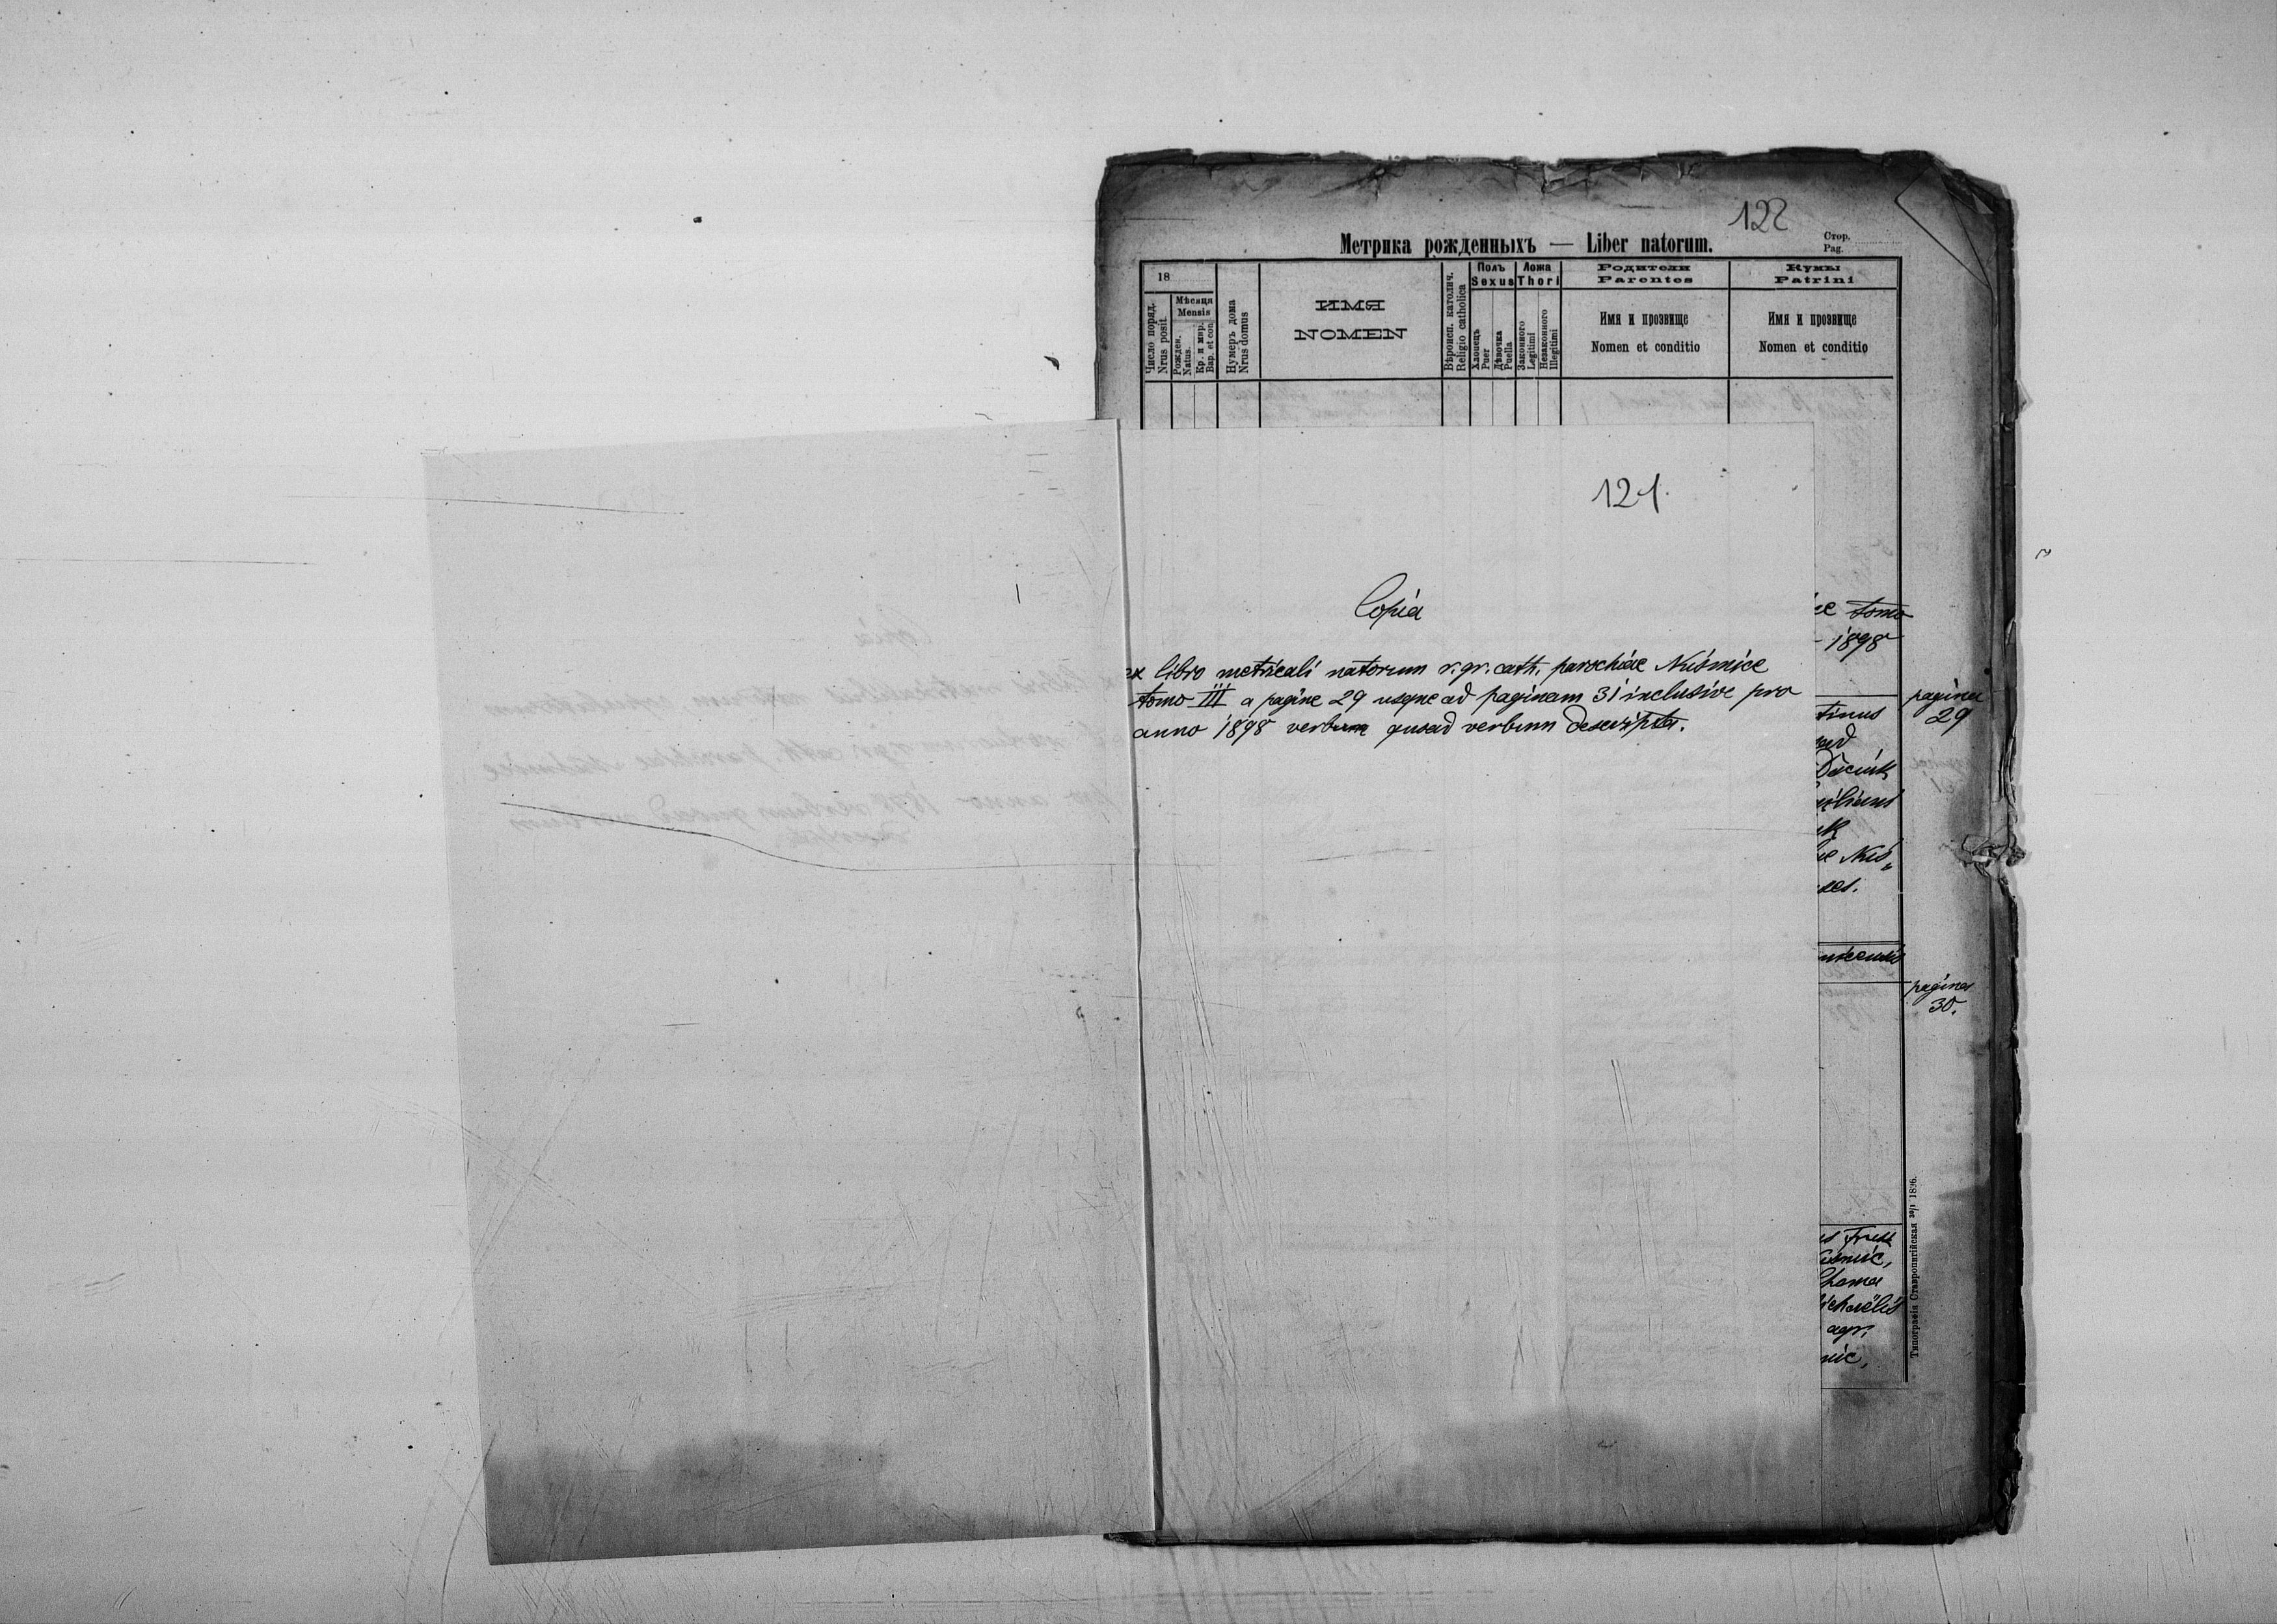 122
Метрика рожденныхъ — Liber natorum.
Стор.
Pag.
18
Число поряд.
Nrus posit.
Мѣсяця
Mensis
Рожден.
Natus.
Кр. и мир.
Bap. et con.
Нумеръ дома
Nrus domus
ИМЯ
NOMEN
Вѣроисп. католич.
Religio catholica
Полъ
Sexus
Хлопецъ
Puer
Дѣвочка
Puella
Ложа
Thori
Законного
Legitimi
Незаконного
Illegitimi
Родители
Parentes
Имя и прозвище
Nomen et conditio
Кумы
Patrini
Имя и прозвище
Nomen et conditio
121.
Copia
ex libro metricali natorum r. gr. cath. parochiae Nusmice
tomo III a pagina 29 usque ad paginam 31 inclusive pro
anno 1898 verbum quoad verbum descripta.
tomo
1898
pagina
29
tinus
Nus„
pagina
30.
agr.
Типографія Ставропигійская 30/1 1896.